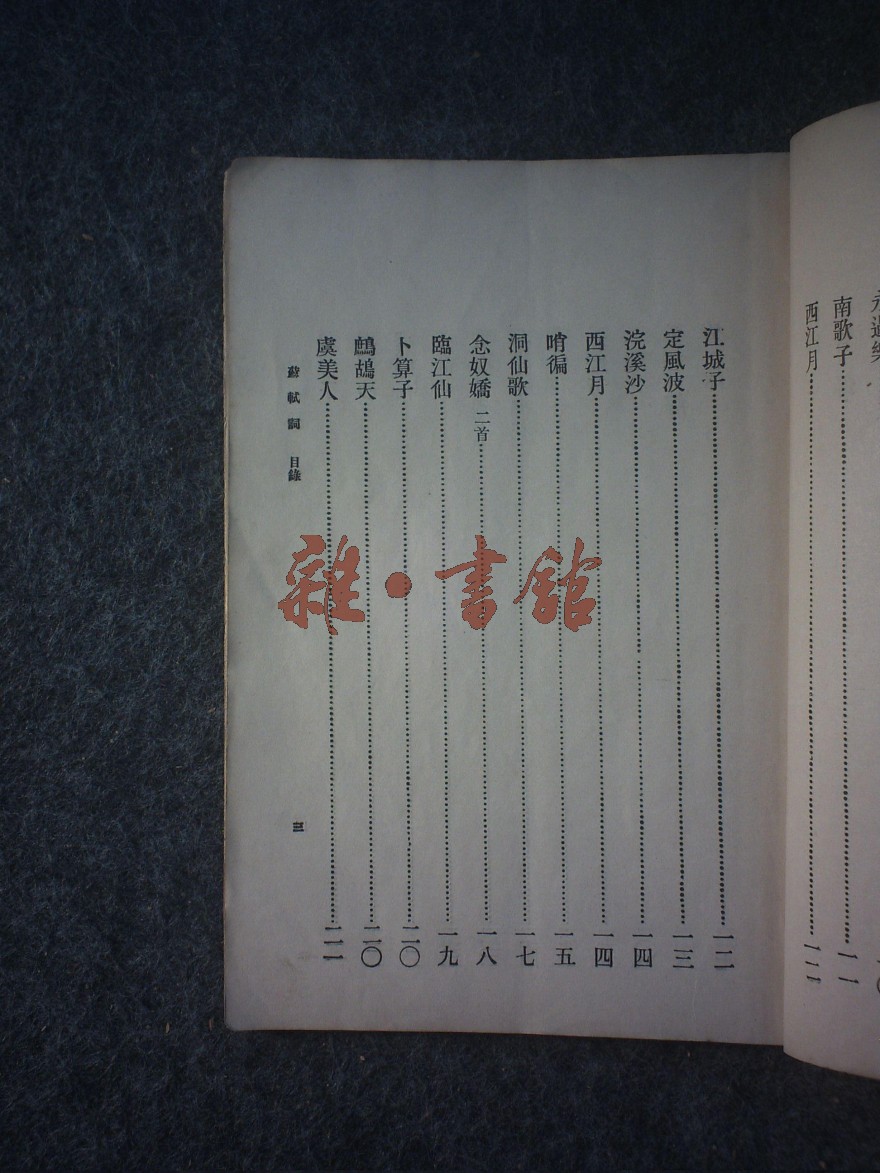 南歌子⋯⋯一一
西江月⋯⋯一二
江城子⋯⋯一二
定風波⋯⋯一三
浣溪沙⋯⋯一四
西江月⋯⋯一四
哨徧⋯⋯一五
洞仙歌⋯⋯一七
念奴嬌 二首⋯⋯一八
臨江仙⋯⋯一九
卜算子⋯⋯二〇
鷓鴣天⋯⋯二〇
虞美人⋯⋯二一
蘇軾詞 目錄 三
雜·書館